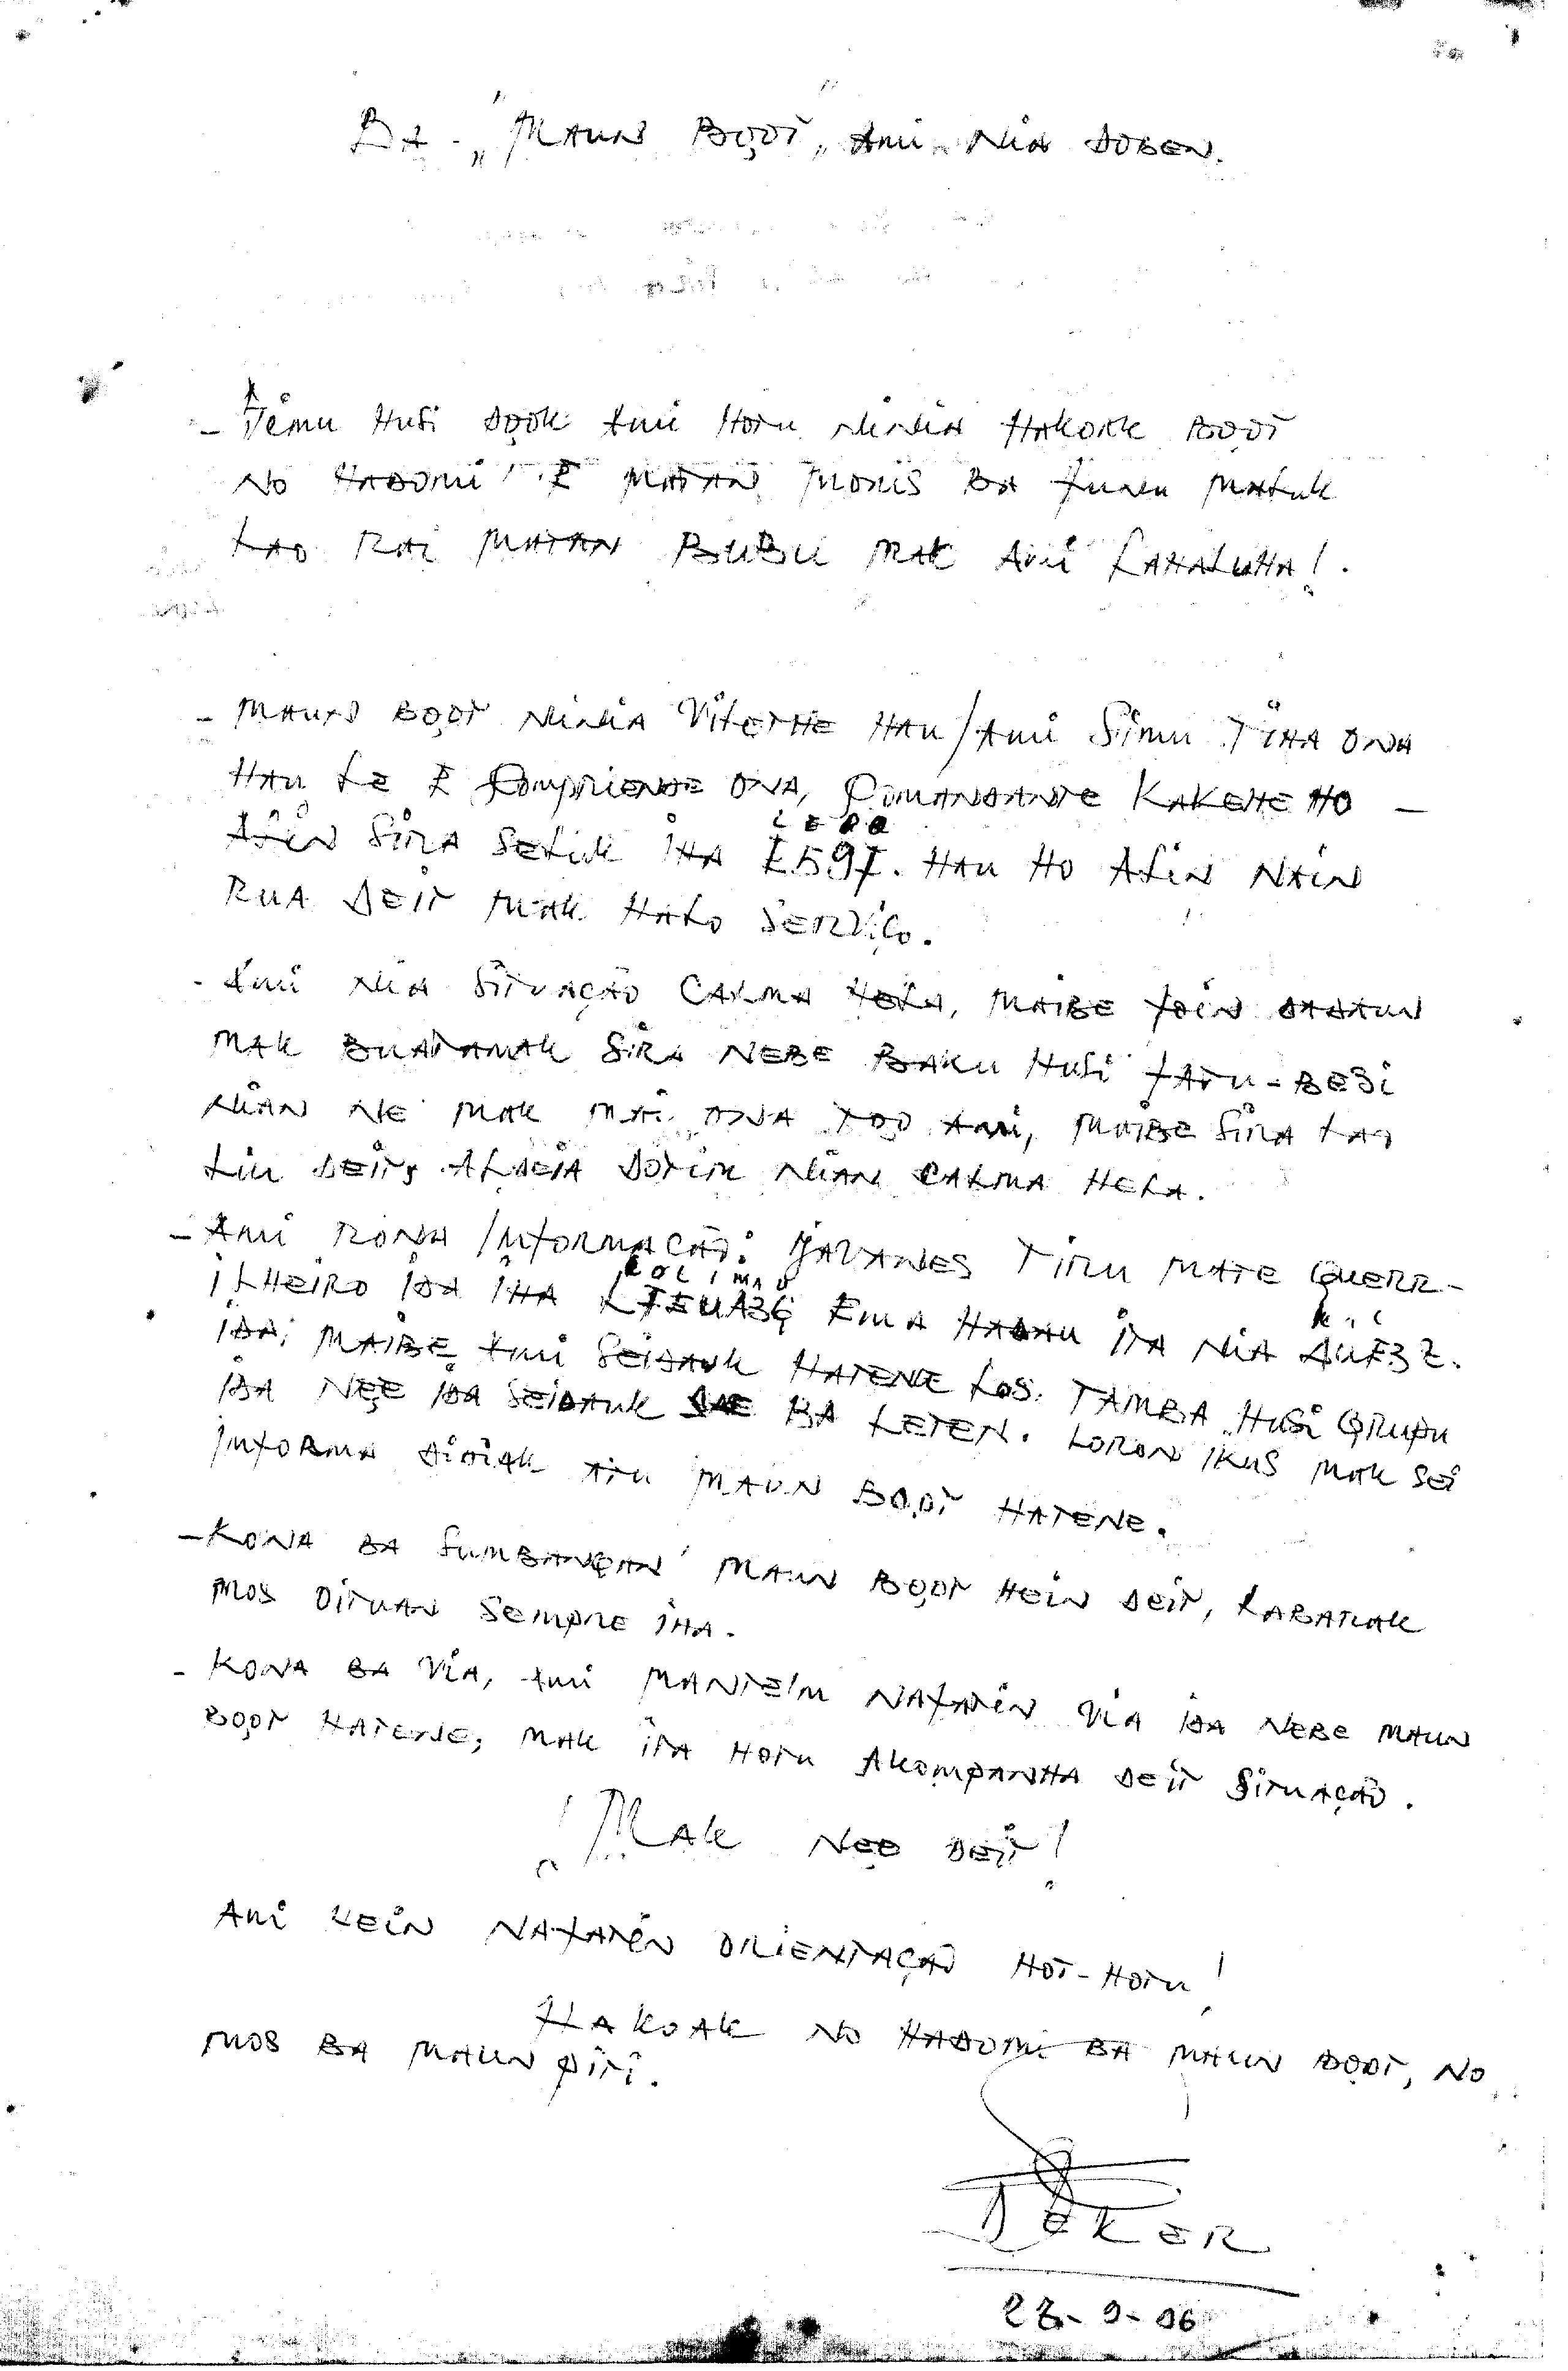 BA - "MAUN BOOT" AMI NIA DOBEN.
- Têmu HUSI DOOK AMI HOTU NINIA HAKOAK BOOT
NO HADOMI E MATAN MORIS BA FUNU MATUK
LAO RAI MATAN BUBU MAK AMI LAHALUHA!
- MAUN BOOT NINIA VILETHE HAU/AMI SIMU TIHA ONA
HAU LE E COMPRIENDE ONA, COMANDANTE KAKEHE HO -
ALIN SIRA SELUK IHA I59I. HAU HO ALIN NAIN
LERE
RUA DEIT MAK HALO SERVIÇO.
- AMI NIA SITUAÇÃO CALMA HELA, MAIBE FOIN DADAUN
MAK BUATAMAK SIRA NEBE BAKU HUSI FATU-BESI
NIAN NE MAK MAI ONA TOO AMI, MAIBE SIRA LAO
LIU DEIT, ALDEIA DOTIK NIAN CALMA HELA.
- AMI RONA INFORMACÃO: JAVANES TIRU MATE GUERR-
ILHEIRO IDA IHA LIEUA3G EMA HADAU ITA NIA AUE3Z.
KOLIMAU
K.I.
IDA; MAIBE AMI SEIDAUK HATENE LOS. TAMBA HUSI GRUPU
IDA NEE IDA SEIDAUK SAE BA LETEN. LORON IKUS MAK SEI
INFORMA DIDIAK ATU MAUN BOOT HATENE.
- KONA BA SUMBANÇAN MAUN BOOT HEIN DEIT, LABARIAK
MOS OITUAN SEMPRE IHA.
- KONA BA VIA, AMI MANTEIM NAFATIN VIA IDA NEBE MAUN
BOOT HATENE, MAK ITA HOTU AKOMPANHA DEIT SITUAÇÃO.
! MAK NEE DEIT!
AMI HEIN NAFATIN ORIENTAÇÃO HOT-HOTU!
HAKOAK NO HADOMI BA MAUN BOOT, NO
MOS BA MAUN PITI.
DEKER
28-9-96